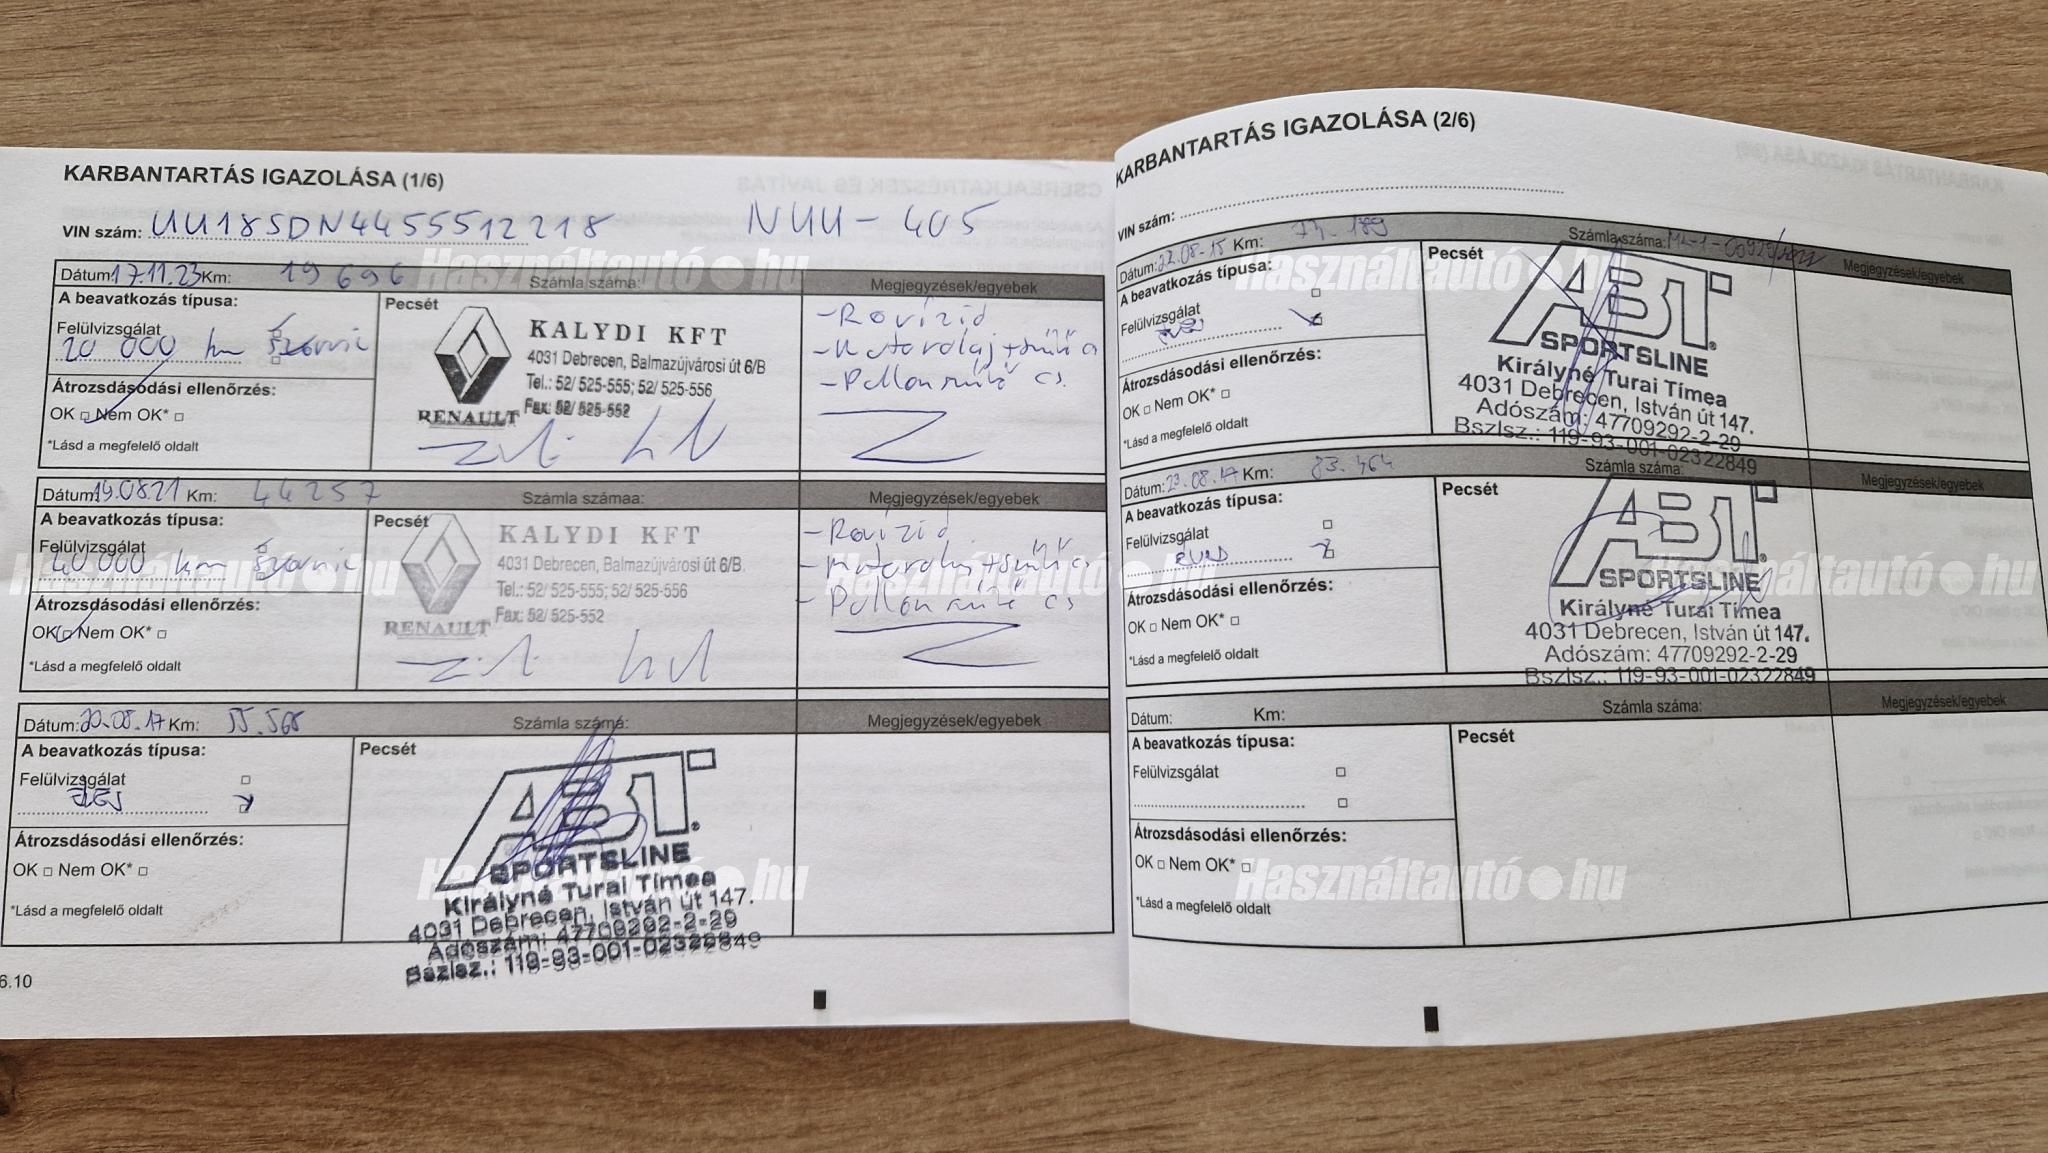 KARBANTARTÁS IGAZOLÁSA (1/6)
VIN szám: UU18SDN4455512218 NUU-405
Dátum: 17.11.23 Km: 19 696 Számla száma: Megjegyzések/egyebek
A beavatkozás típusa:
Felülvizsgálat
20 000 km
Átrozsdásodási ellenőrzés:
OK Nem OK*
*Lásd a megfelelő oldalt
Pecsét
KALYDI KFT
4031 Debrecen, Balmazújvárosi út 6/B
Tel.: 52/525-555; 52/ 525-556
Fax: 52/ 525-552
RENAULT
Dátum: 19.08.21 Km: 44257 Számla számaa: Megjegyzések/egyebek
A beavatkozás típusa:
Felülvizsgálat
40 000 km
Átrozsdásodási ellenőrzés:
OK Nem OK*
*Lásd a megfelelő oldalt
Pecsét
KALYDI KFT
4031 Debrecen, Balmazújvárosi út 6/B.
Tel.: 52/525-555; 52/ 525-556
Fax: 52/ 525-552
RENAULT
Dátum: 20.08.17 Km: 55.568 Számla száma: Megjegyzések/egyebek
A beavatkozás típusa:
Felülvizsgálat
Átrozsdásodási ellenőrzés:
OK Nem OK*
*Lásd a megfelelő oldalt
Pecsét
ABT
SPORTSLINE
Királyné Turai Tímea
4031 Debrecen, István út 147.
Adószám: 47709292-2-29
Bszlsz.: 119-93-001-02322849
6.10
KARBANTARTÁS IGAZOLÁSA (2/6)
VIN szám:
Dátum: 22.08-15 Km: 74.189 Számla száma: Megjegyzések/egyebek
A beavatkozás típusa:
Felülvizsgálat
Átrozsdásodási ellenőrzés:
OK Nem OK*
*Lásd a megfelelő oldalt
Pecsét
ABT
SPORTSLINE
Királyné Turai Tímea
4031 Debrecen, István út 147.
Adószám: 47709292-2-29
Bszlsz.: 119-93-001-02322849
Dátum: 23.08.17 Km: 83.464 Számla száma: Megjegyzések/egyebek
A beavatkozás típusa:
Felülvizsgálat
Átrozsdásodási ellenőrzés:
OK Nem OK*
*Lásd a megfelelő oldalt
Pecsét
ABT
SPORTSLINE
Királyné Turai Tímea
4031 Debrecen, István út 147.
Adószám: 47709292-2-29
Bszlsz.: 119-93-001-02322849
Dátum: Km: Számla száma: Megjegyzések/egyebek
A beavatkozás típusa:
Felülvizsgálat
Átrozsdásodási ellenőrzés:
OK Nem OK*
*Lásd a megfelelő oldalt
Pecsét
Használtautó.hu
Használtautó.hu
Használtautó.hu
Használtautó.hu
Használtautó.hu
Használtautó.hu
Használtautó.hu